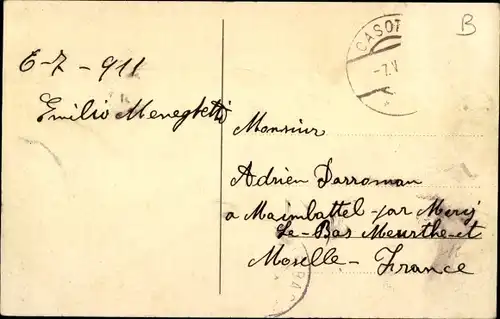 6-7-911
Emilio Meneghetti
CASOT
-7.V
B
Monsieur
Adrien Darroman
a Maimbattel-par Mercy
Le-Bas Meurthe-et
Moselle-France